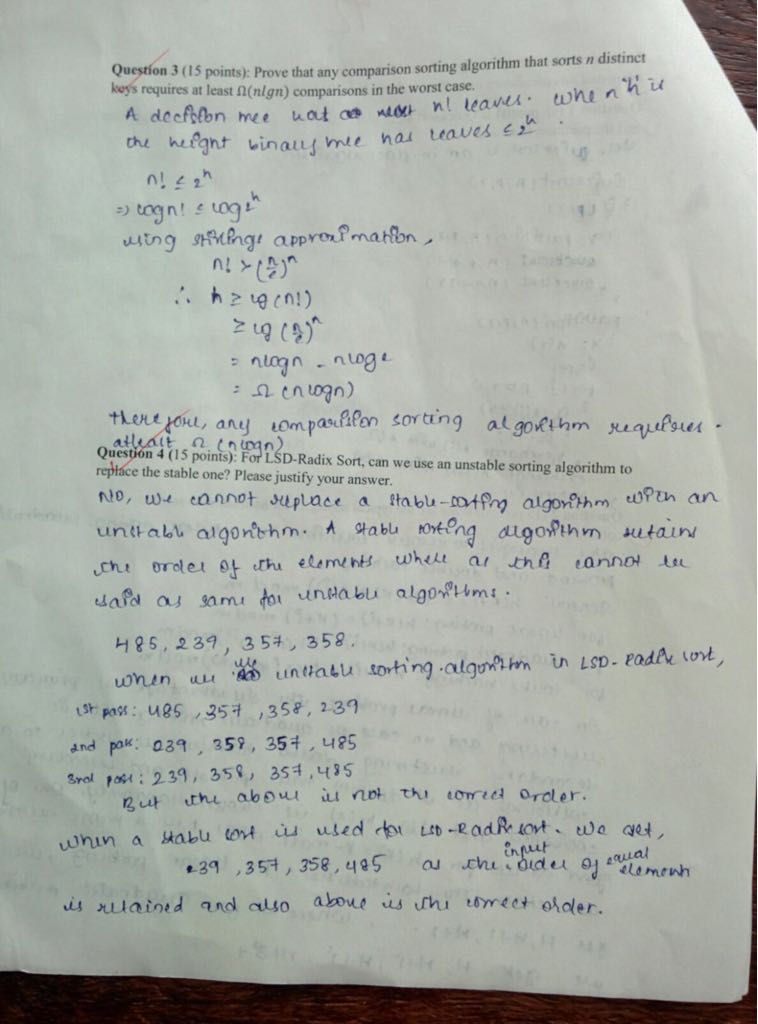 Question 3 (15 points): Prove that any comparison sorting algorithm that sorts n distinct
keys requires at least Ω(nlgn) comparisons in the worst case.
A decision tree has n! leaves. when 'h' is
the height binary tree has leaves ≤ 2^h.
n! ≤ 2^h
=> logn! ≤ log2^h
using stirlings approximation,
n! > (n/e)^n
∴ h ≥ lg(n!)
≥ lg (n/e)^n
= nlogn - nloge
= Ω(nlogn)
therefore, any comparision sorting algorithm requires
atleast Ω(nlogn)
Question 4 (15 points): For LSD-Radix Sort, can we use an unstable sorting algorithm to
replace the stable one? Please justify your answer.
NO, we cannot replace a stable-sorting algorithm with an
unstable algorithm. A stable sorting algorithm retains
the order of the elements where as this cannot be
said as same for unstable algorithms.
485, 239, 357, 358.
when we use unstable sorting algorithm in LSD-Radix sort,
1st pass: 485, 357, 358, 239
2nd pass: 239, 358, 357, 485
3rd pass: 239, 358, 357, 485
But the above is not the correct order.
when a stable sort is used for LSD-Radix sort. we get,
239, 357, 358, 485 as the input order of equal element
is retained and also above is the correct order.